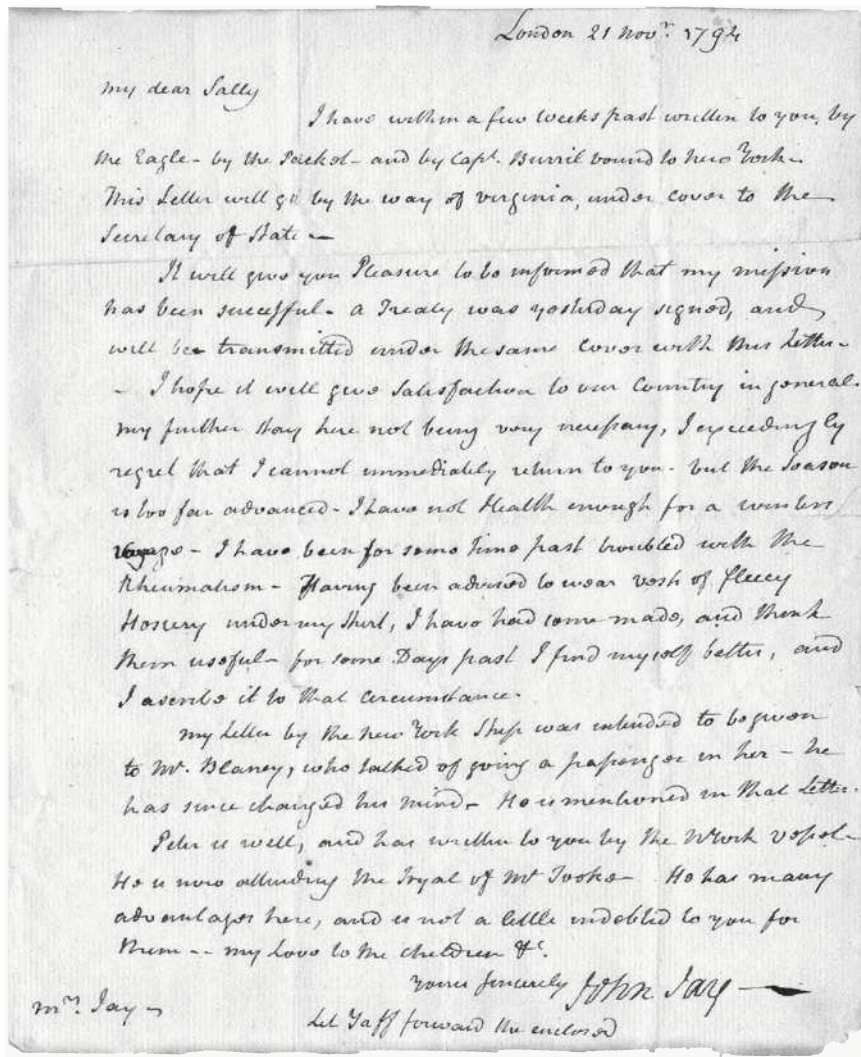 London 21 Novr. 1794
my dear Sally
I have within a few weeks past written to you, by
the Eagle - by the Packet - and by Capt. Burril bound to New York -
This Letter will go by the way of virginia, under cover to the
Secretary of State -
It will give you Pleasure to be informed that my mission
has been successful - a Treaty was yesterday signed, and
will be transmitted under the same Cover with this Letter -
- I hope it will give Satisfaction to our Country in general.
my further stay here not being very necessary, I exceedingly
regret that I cannot immediately return to you - but the Season
is too far advanced - I have not Health enough for a winters
voyage - I have been for some time past troubled with the
Rheumatism - Having been advised to wear vests of fleecy
Hosiery under my Shirt, I have had some made, and think
them useful - for some Days past I find myself better, and
I ascribe it to that circumstance.
my Letter by the new York Ship was intended to be given
to Mr. Blaney, who talked of going a passenger in her - he
has since changed his mind - He is mentioned in that Letter.
Peter is well, and has written to you by the NYork vessel -
He is now attending the Tryal of Mr Tooke - He has many
advantages here, and is not a little indebted to you for
them -- my Love to the children &c.
Yours sincerely John Jay -
Mrs. Jay -
Let Taff forward the enclosed